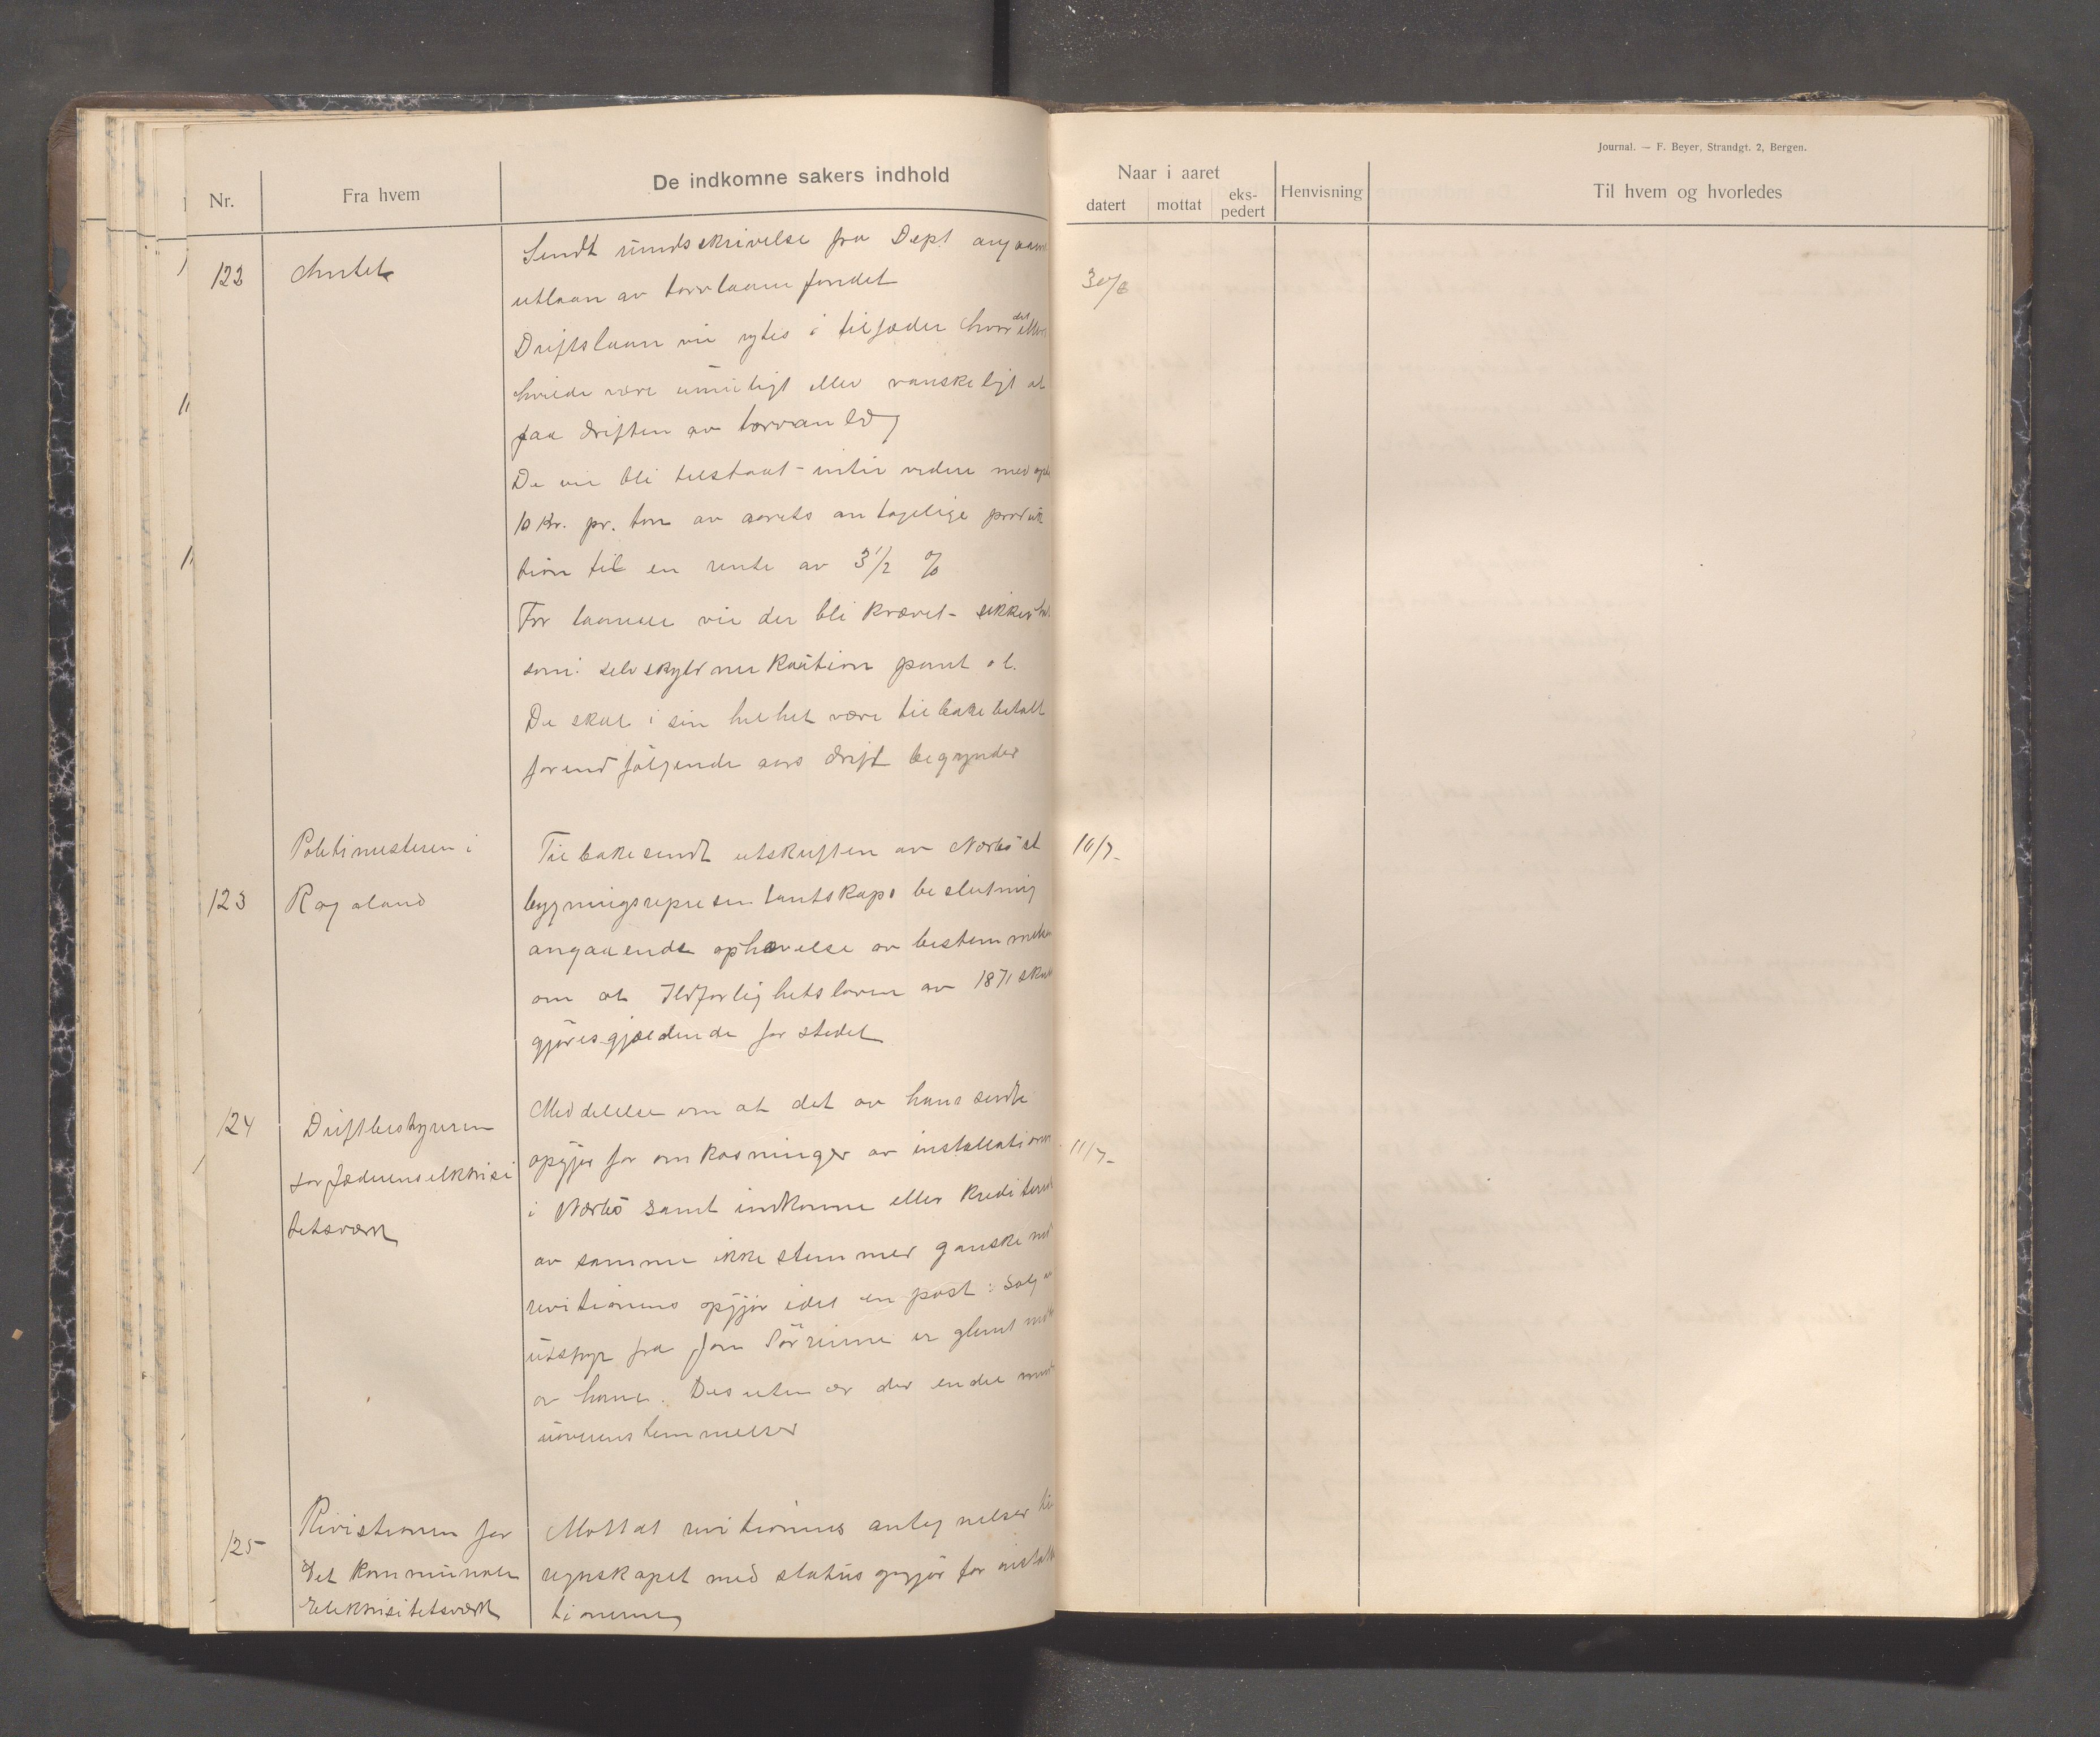 Journal. — F. Beyer, Strandgt. 2, Bergen.
Nr.
Fra hvem
De indkomne sakers indhold
Naar i aaret
datert
mottat
eks-
pedert
Henvisning
Til hvem og hvorledes
122
Amtet
30/6
Sendt rundskrivelse fra Dept ang
utlaan av torvlaane fondet
Driftslaan vil ydes i tilfælder hvor det ellers
hvilde være umuligt eller vanskeligt at
faa driften av torvanlæg
De vil bli tilstaat intil videre med
10 Kr. pr. ton av aarets antagelige produk
tion til en rente av 3 1/2 %
For laanene vil der bli krævet sikkerhet
som selvskyldnerkaution pant ol.
De skal i sin helhet være tilbakebetalt
forend følgende aars drift begynder
123
Politimesteren i
Rogaland
10/7
Tilbakesendt utskriften av Nærbö st
bygningsrepresentantskaps beslutning
angaaende ophævelse av bestemmelsen
om at Ildfarlighetsloven av 1871 skal
gjøres gjældende for stedet
124
Driftbestyreren
for Jæderens elektrisi
tetsverk
11/7
Meddelelse om at det av ham sendte
opgjør for omkosninger av installationen
i Nærbö samt indkomne eller krediterede
av samme ikke stemmer ganske med
revitionens opgjør idet en post: salg av
utstyr fra Jon er glemt
av ham. Desuten er der endel mindre
uoverenstemmelser
125
Rivisionen for
Det kommunale
Elektrisitetsverk
Mottat revitionens antegnelser til
regnskapet med status opgjør for installa
tionerne